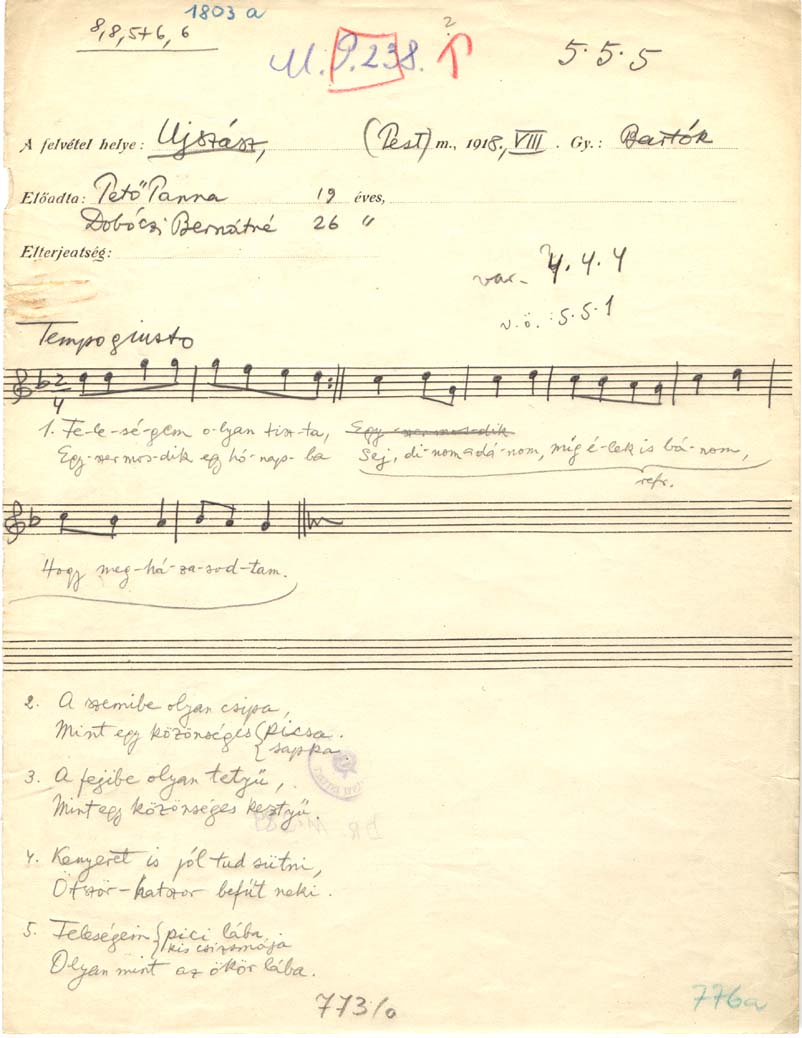 1803 a
8, 8, 5+6, 6
2
M. P. 238. 5. 5. 5
A felvétel helye: Ujszász, (Pest) m., 1918., VIII. Gy.: Bartók
Előadta: Pető Panna 19 éves,
Dobóczi Bernátné 26 "
Elterjeatség:
var. ? 4. 4. 4
v. ö.: 5. 5. 1
Tempo giusto
2/4
1. Fe-le-sé-gem o-lyan tisz-ta, Egy-szer mos-dik
Egy-szer mos-dik egy hó-nap-ba Sej, di-nom-dá-nom, míg é-lek is bá-nom,
refr.
Hogy meg-há-za-sod-tam.
2. A szemibe olyan csipa,
Mint egy közönséges picsa.
sappa.
3. A fejibe olyan tetyű,
Mint egy közönséges kesztyű.
4. Kenyeret is jól tud sütni,
Ötször-hatszor befűt neki.
5. Feleségem pici lába
kis csizmája
Olyan mint az ökör lába.
773/o 776a